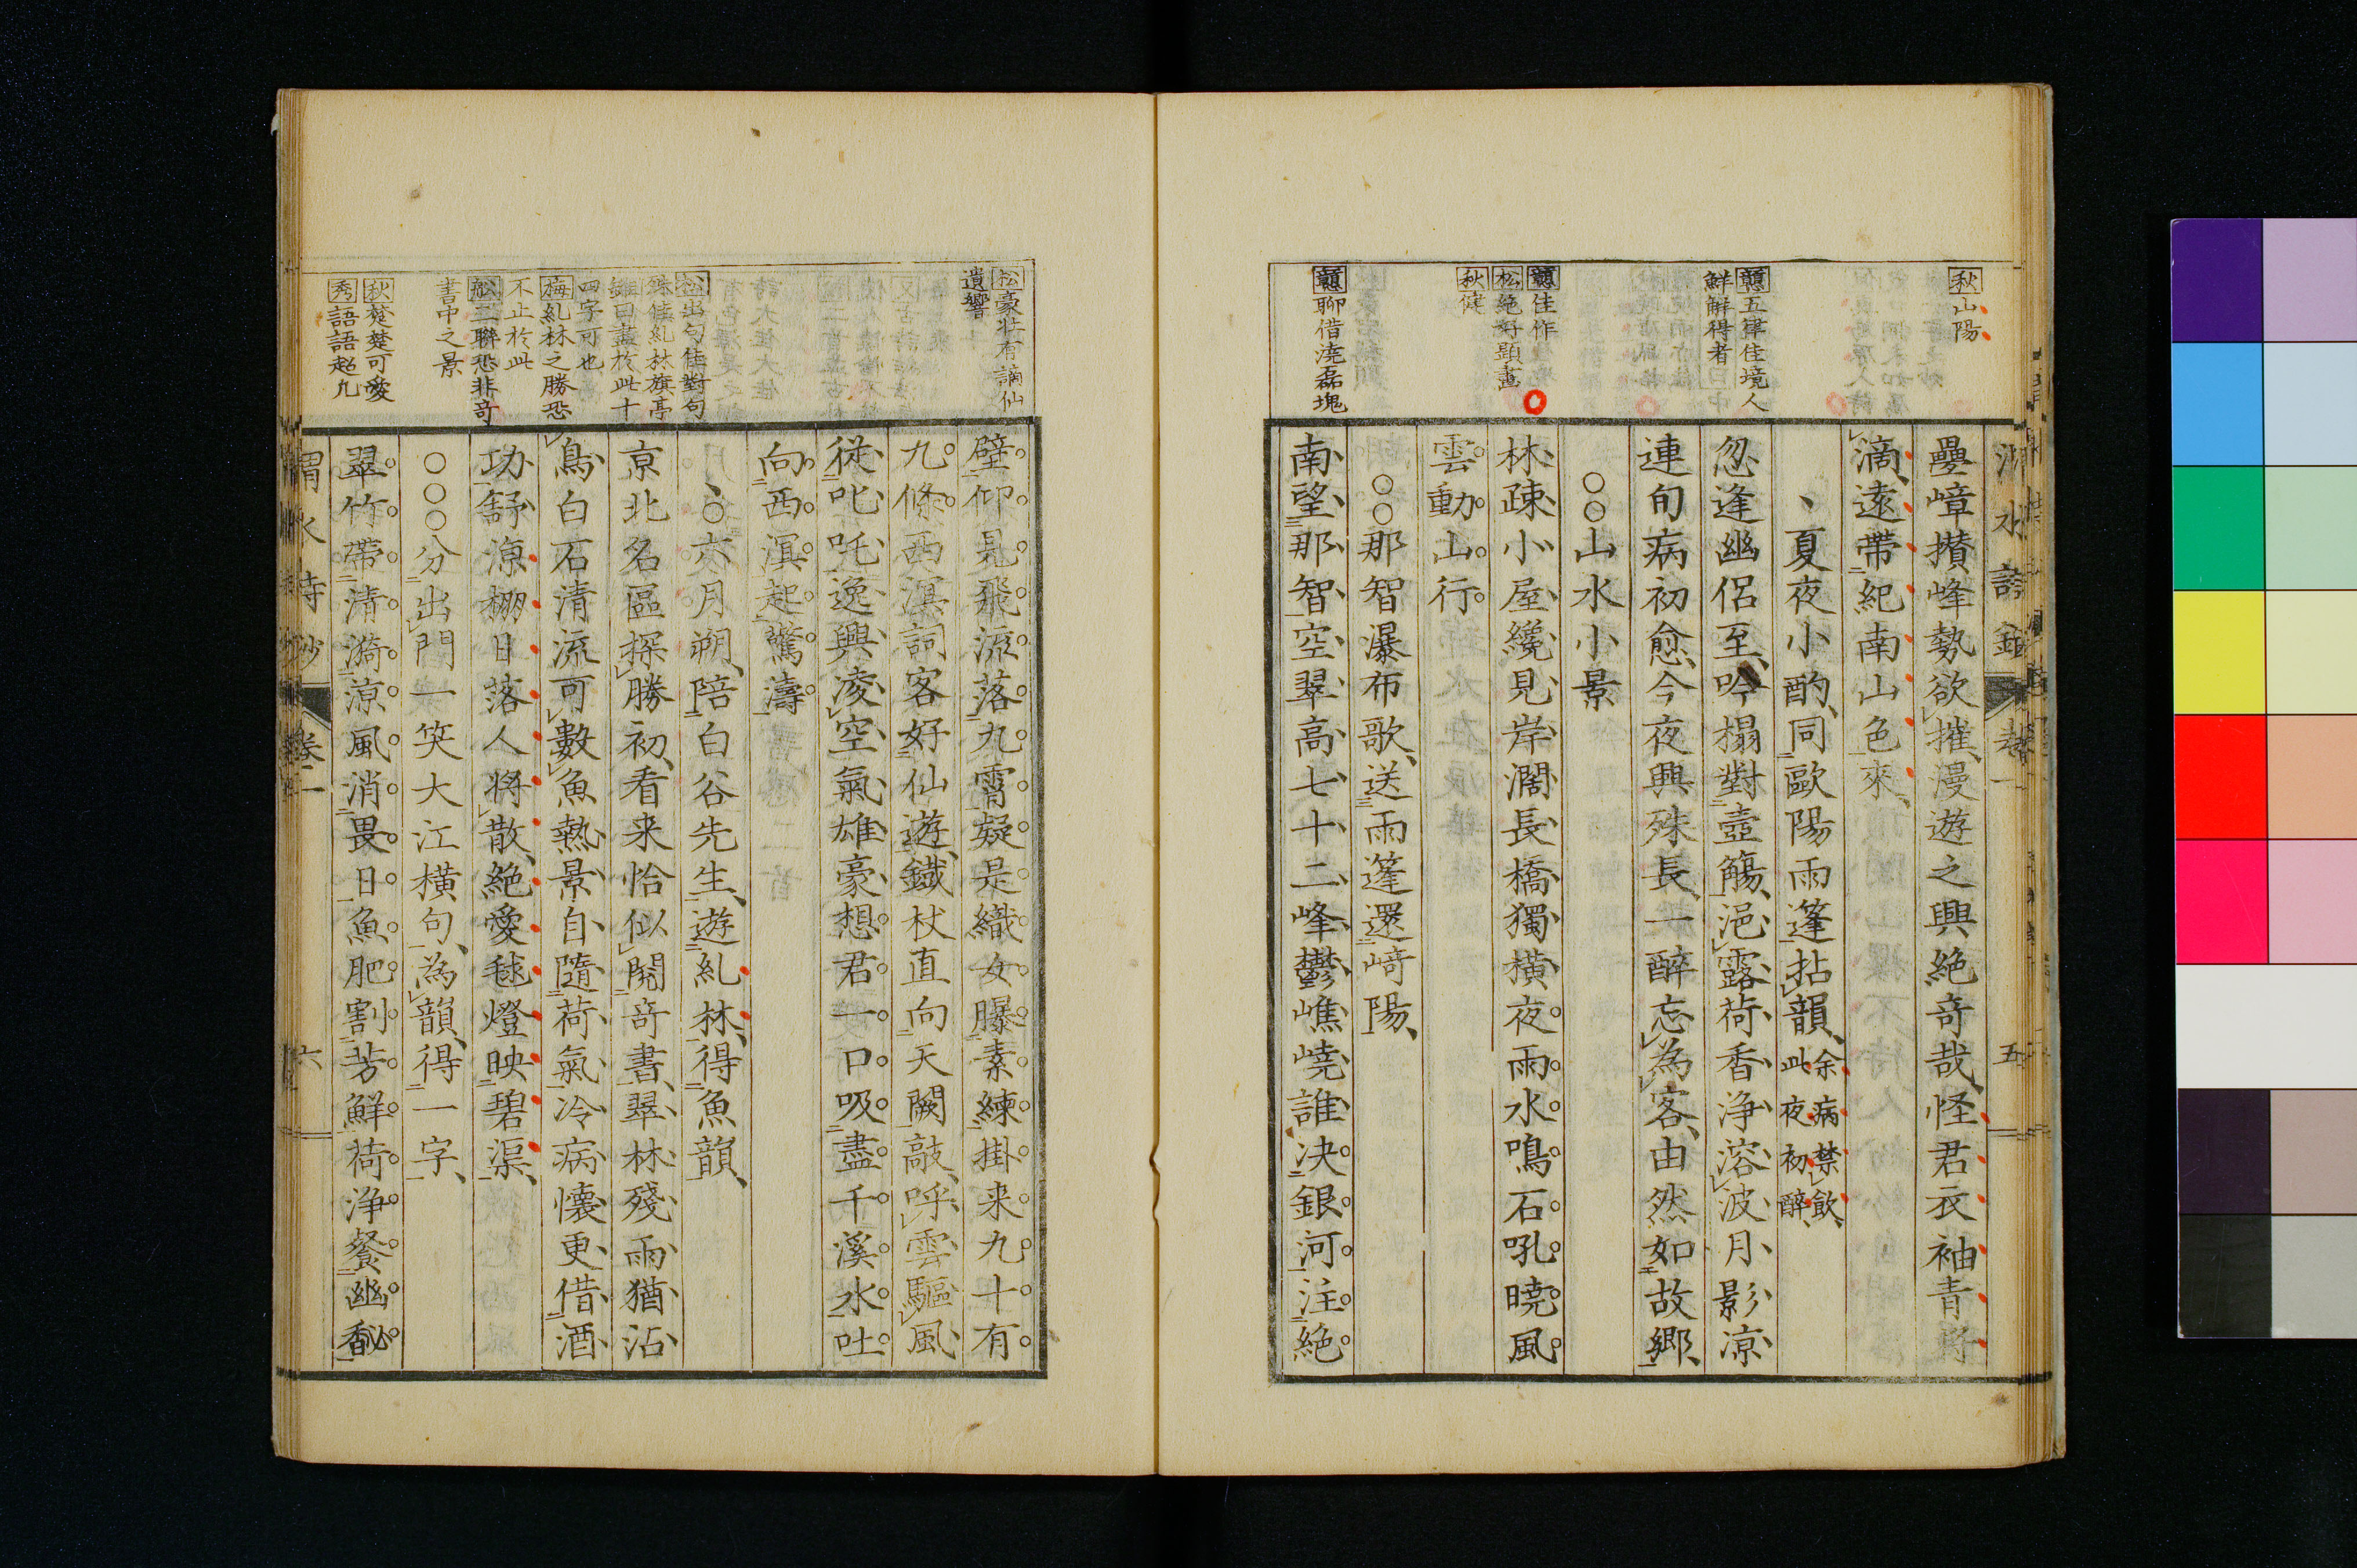 秋山陽
戇五律佳境人
鮮解得者
戇佳作
松絶好顕畫
秋健
戇聊借澆磊塊
疊嶂攅峰勢欲摧漫遊之興絶竒哉怪君衣袖青將
滴遠帶紀南山色來
夏夜小酌同歐陽雨篷拈韻余病禁飲
此夜初醉
忽逢幽侶至吟榻對壺觴浥露荷香浄溶波月影凉
連旬病初愈今夜興殊長一醉忘為客由然如故郷
○○山水小景
林疎小屋纔見岸濶長橋獨橫夜雨水鳴石吼曉風
雲動山行
○○那智瀑布歌送雨篷還﨑陽
南望那智空翠高七十二峰鬱嶕嶢誰決銀河注絶
五
松豪壮有謫仙
遺響
松出句佳對句
殊佳糺林旗亭
雖曰盡於此十
四字可也
梅糺林之勝恐
不止於此
松三聯恐非竒
書中之景
秋楚楚可愛
秀語語超凡
壁仰見飛流落九霄疑是織女曝素練掛来九十有
九條西溟詞客好仙遊鐵杖直向天闕敲呼雲驅風
従叱吒逸興凌空氣雄豪想君一口吸盡千溪水吐
向西溟起驚濤
○六月朔陪白谷先生遊糺林得魚韻
京北名區探勝初看来恰似閲竒書翠林殘雨猶沾
鳥白石清流可數魚熱景自隨荷氣冷病懷更借酒
功舒凉棚日落人將散絶愛毬燈映碧渠
○○○分出門一笑大江橫句為韻得一字
翠竹帶清漪涼風消畏日魚肥割芳鮮荷浄餐幽馝
卷一
六